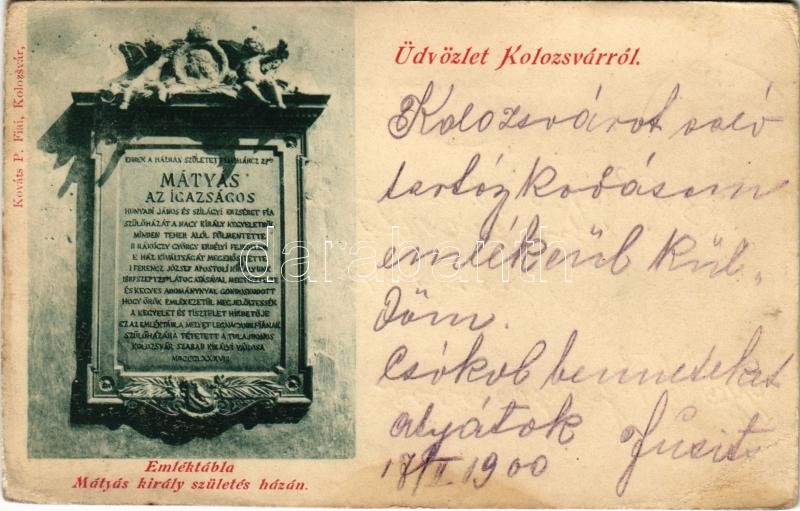 Üdvözlet Kolozsvárról.
Kolozsvárot való
tartózkodásom
emlékeül kül„
döm.
Csókol benneteket
atyátok
17/II 1900
Kováts P. Fiai, Kolozsvár,
EBBEN A HÁZBAN SZÜLETETT
MÁTYÁS
AZ IGAZSÁGOS
HUNYADI JÁNOS ÉS SZILÁGYI ERZSÉBET FIA
SZÜLŐHÁZÁT A NAGY KIRÁLY KEGYELETBŐL
MINDEN TEHER ALÓL FÖLMENTETTE
II RÁKÓCZY GYÖRGY ERDÉLYI FEJEDELEM
E HÁZ KIVÁLTSÁGÁT MEGERŐSÍTETTE
I FERENCZ JÓZSEF APOSTOLI KIRÁLYUNK
LÁTOGATÁSÁVAL MEGTISZTELTE
ÉS KEGYES ADOMÁNYNYAL GONDOSKODOTT
HOGY ÖRÖK EMLÉKEZETÜL MEGJELÖLTESSÉK
A KEGYELET ÉS TISZTELET HIRDETŐJE
EZ AZ EMLÉKTÁBLA MELYET LEGNAGYOBB FIÁNAK
SZÜLŐHÁZÁRA TÉTETETT A TULAJDONOS
KOLOZSVÁR SZABAD KIRÁLYI VÁROSA
MDCCCLXXXVIII
Emléktábla
Mátyás király születés házán.
darabanth